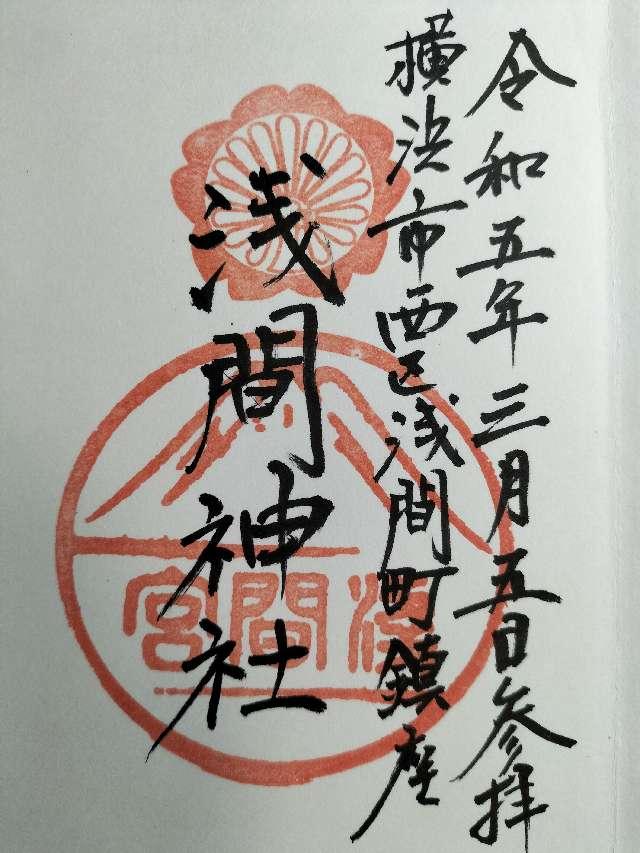 令和五年三月五日参拝
横浜市西区浅間町鎮座
浅間神社
浅間宮